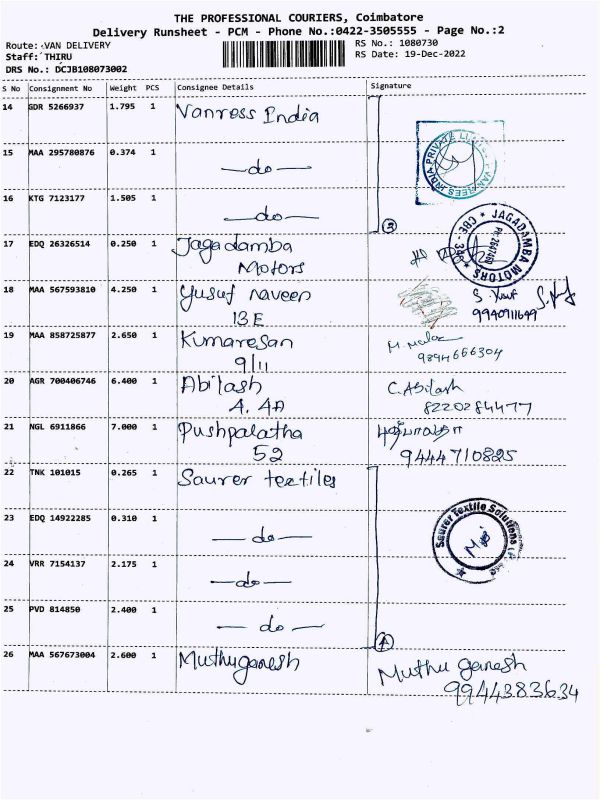 THE PROFESSIONAL COURIERS, Coimbatore
Delivery Runsheet - PCM - Phone No.:0422-3505555 - Page No.:2
Route: VAN DELIVERY
RS No.: 1080730
Staff: THIRU
RS Date: 19-Dec-2022
DRS No.: DCJB108073002
S No Consignment No Weight PCS Consignee Details Signature
14 GDR 5266937 1.795 1 Vanress India
VAN REES INDIA PRIVATE
15 MAA 295780876 0.374 1 -do-
16 KTG 7123177 1.505 1 -do-
3
17 EDQ 26326514 0.250 1 Jagadamba
Motors
JAGADAMBA MOTORS
CBE -
18 MAA 567593810 4.250 1 Yusuf naveen S. Yusuf
13 E 9940911649
19 MAA 858725877 2.650 1 Kumaresan
9/11 9894666304
20 AGR 700406746 6.400 1 Abilash C. Abilash
A. 4A 8220284477
21 NGL 6911866 7.000 1 Pushpalatha
52 9444710825
22 TNK 101015 0.265 1 Saurer textiles
Saurer Textile Solutions
23 EDQ 14922285 0.310 1 -do-
24 VRR 7154137 2.175 1 -do-
25 PVD 814850 2.400 1 -do-
4
26 MAA 567673004 2.600 1 Muthuganesh Muthu ganesh
9944383634